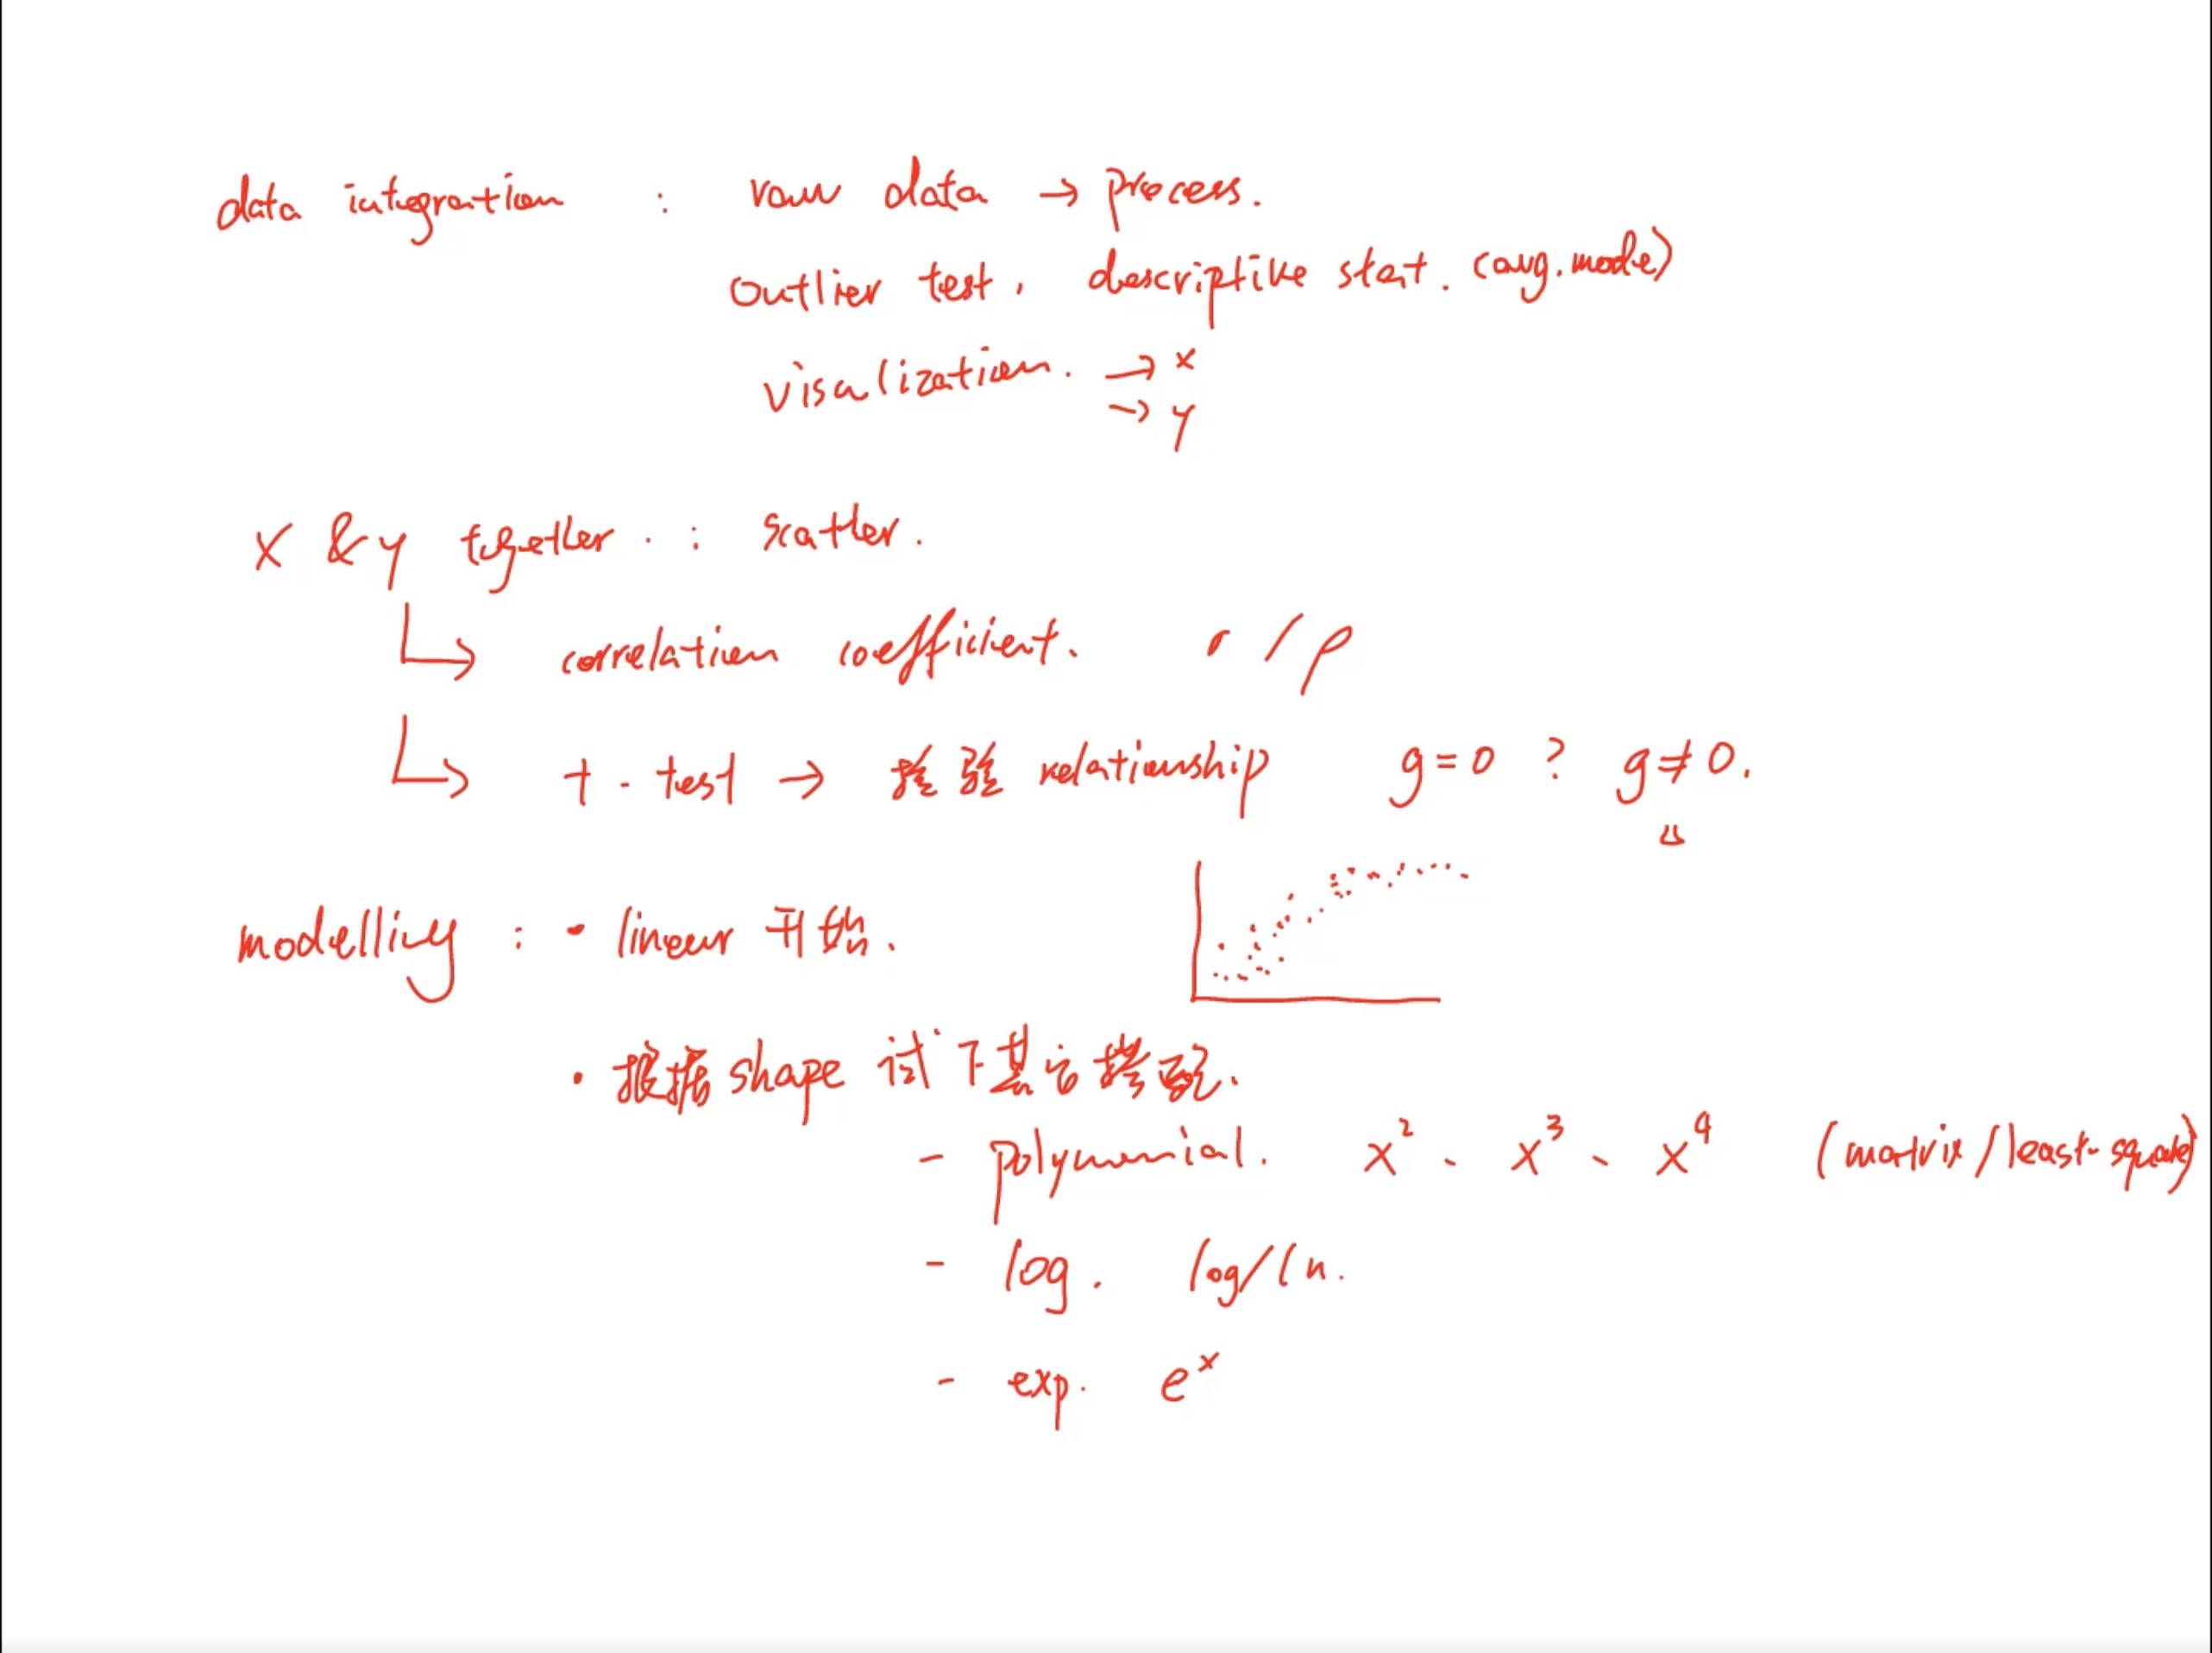 data integration : raw data → process.
outlier test, descriptive stat. (avg. mode)
visulization. → x
→ y
x & y together. : scatter.
correlation coefficient. r / ρ
t-test → 检验 relationship g=0 ? g≠0.
modelling : • linear 开始.
• 根据 shape 试下其它模型.
- polynomial. x² 、 x³ 、 x⁴ (matrix/least-square)
- log. log/ln.
- exp. eˣ